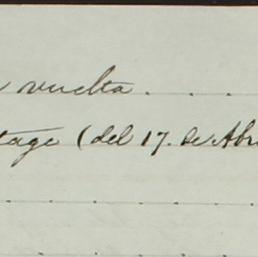 vuelta . . . .
tage (del 17. de Abr